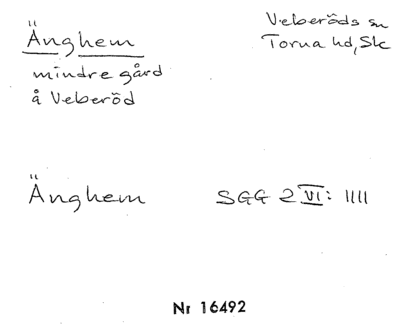 Änghem
Veberöds sn
Torna hd, Sk
mindre gård
å Veberöd
Änghem
SGG 2 VI: 1111
Nr 16492